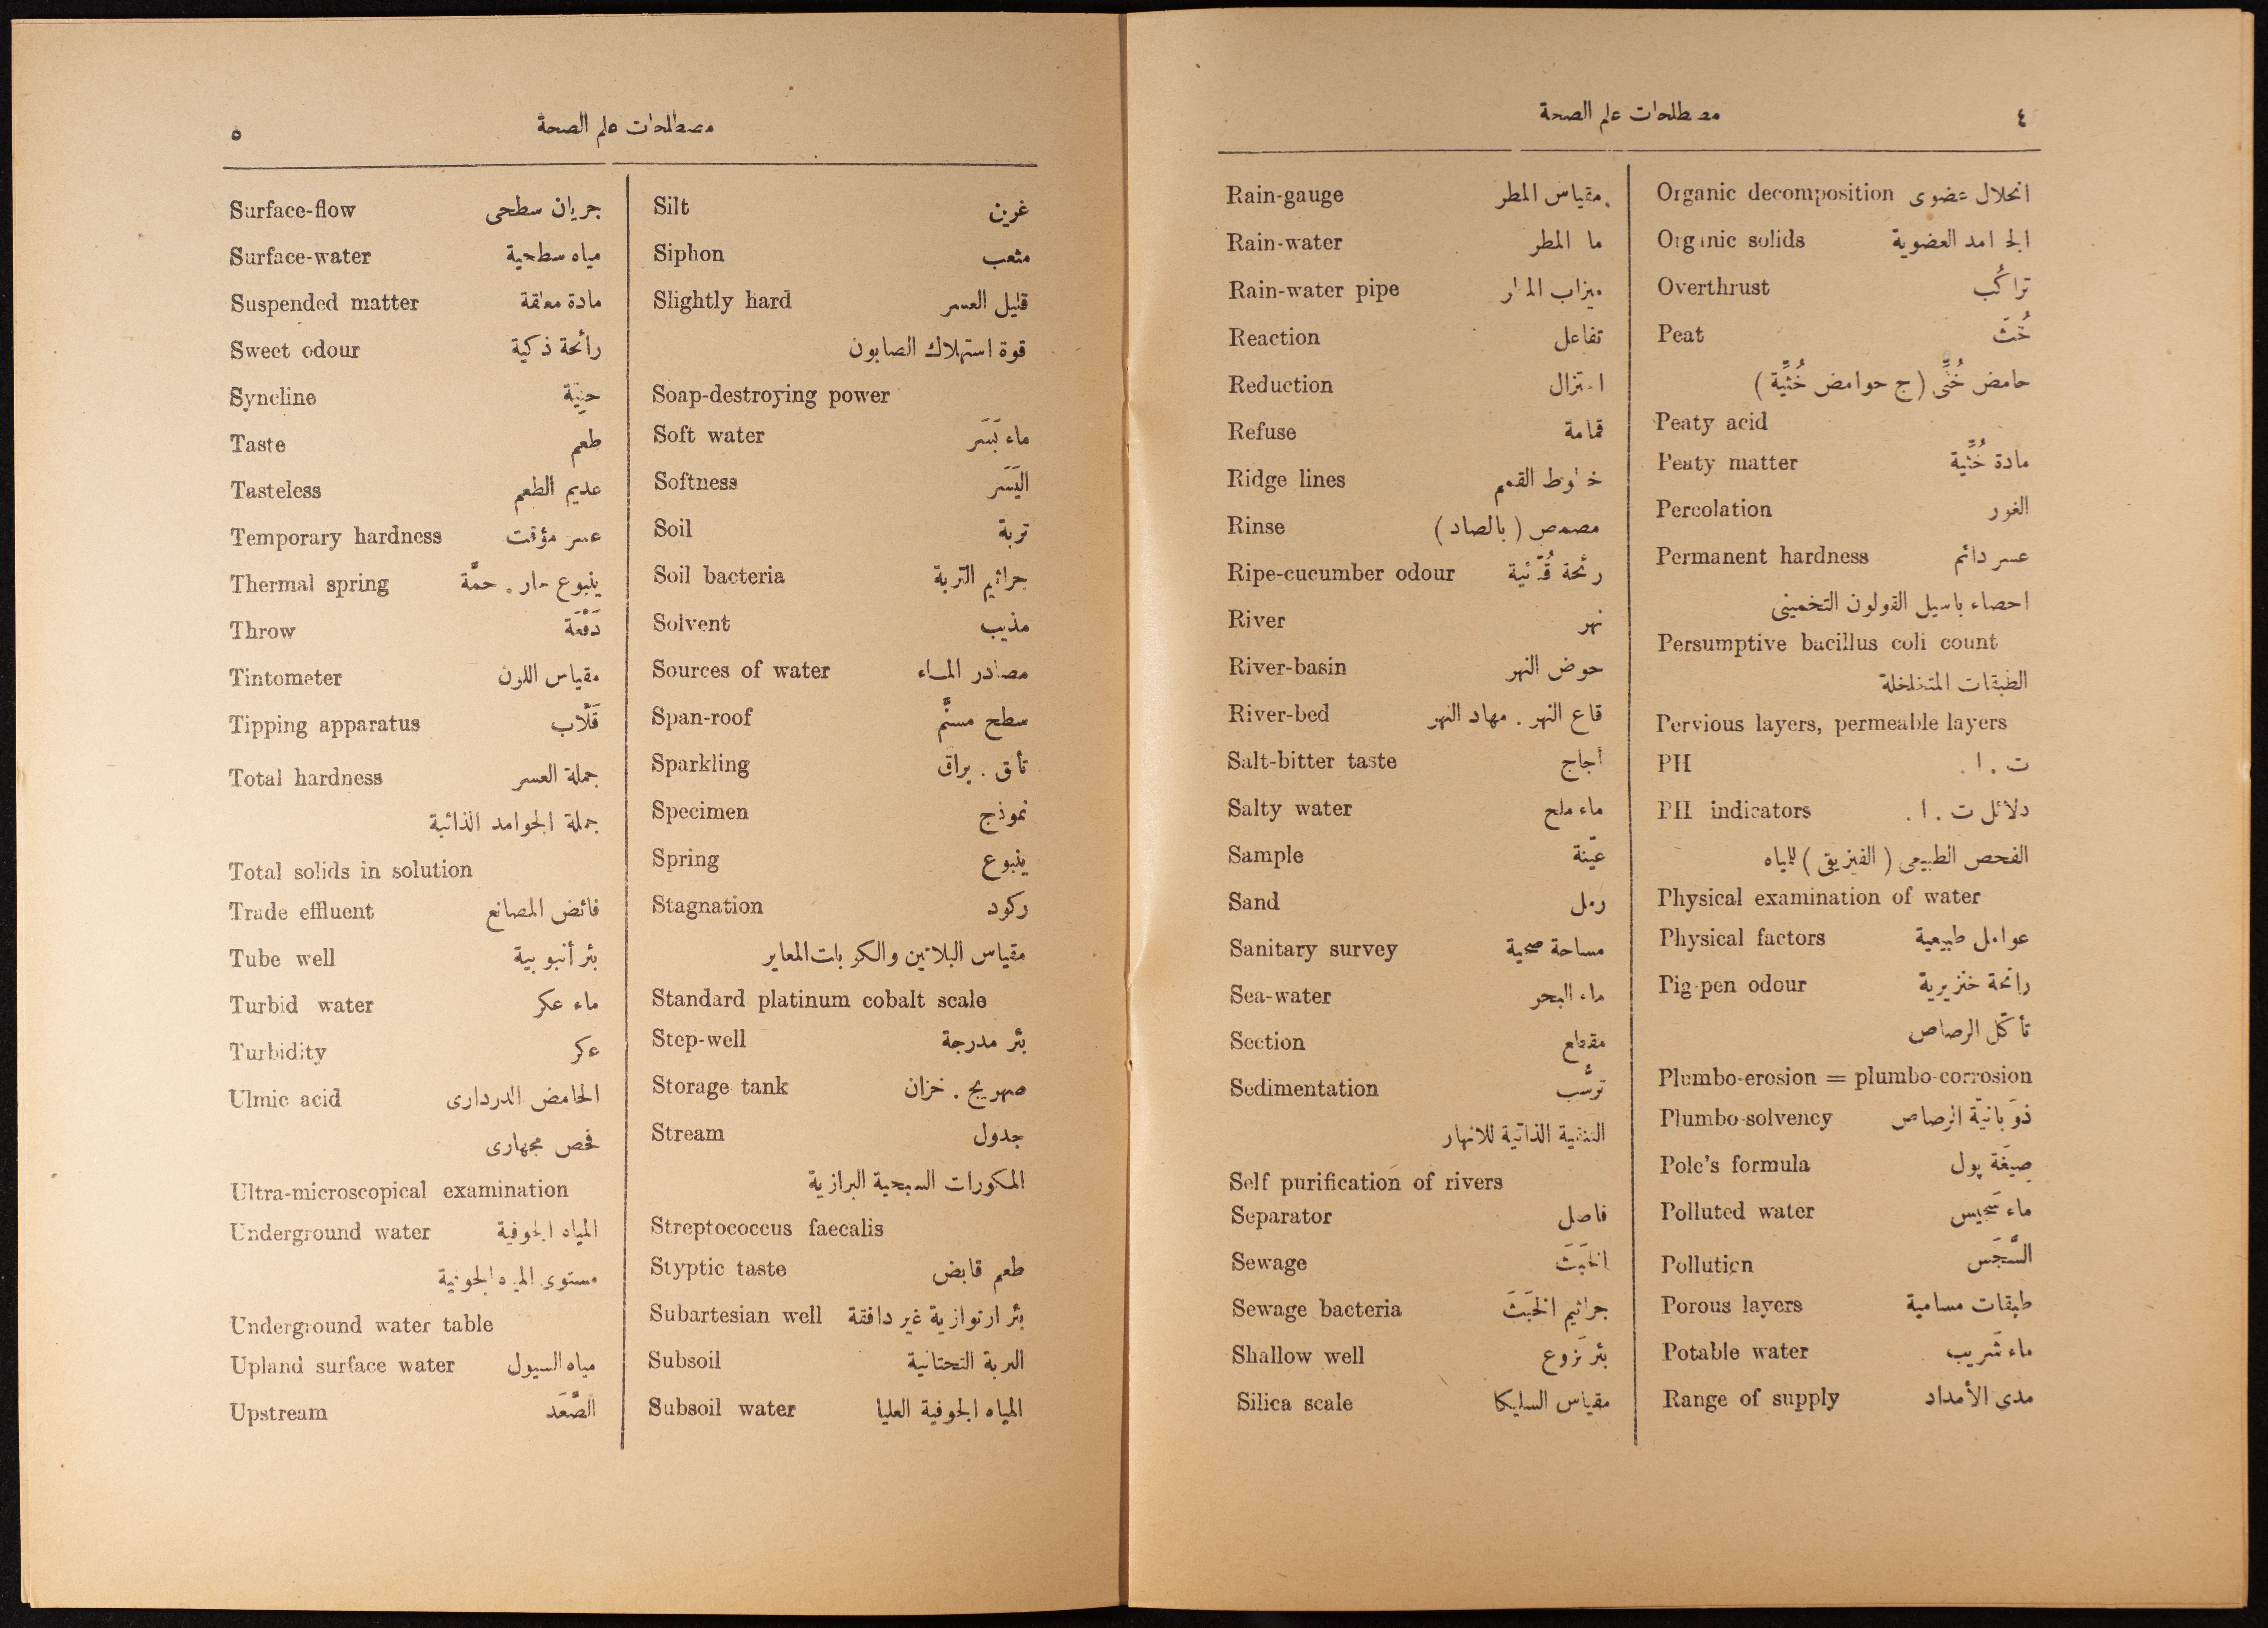 ٤
مصطلحات علم الصحة
Organic decomposition انحلال عضوى
Organic solids الجوامد العضوية
Overthrust تراكُب
Peat خُثّ
حامض خُثِّى (ج حوامض خُثِّيَّة)
Peaty acid
Peaty matter مادة خُثِّية
Percolation الغور
Permanent hardness عسر دائم
احصاء باسيل القولون التخمينى
Persumptive bacillus coli count
الطبقات المتخلخلة
Pervious layers, permeable layers
PH ت . ا .
PH indicators دلائل ت . ا .
الفحص الطبيعى (الفيزيقى) للمياه
Physical examination of water
Physical factors عوامل طبيعية
Pig-pen odour رائحة خنزيرية
تأكّل الرصاص
Plumbo-erosion = plumbo-corrosion
Plumbo-solvency ذوَبانيّة الرصاص
Pole's formula صِيغَة پول
Polluted water ماء سَجِيس
Pollution السَّجَس
Porous layers طبقات مسامية
Potable water ماء شَريب
Range of supply مدى الأمداد
Rain-gauge مقياس المطر
Rain-water ما المطر
Rain-water pipe ميزاب المطر
Reaction تفاعل
Reduction اختزال
Refuse قمامة
Ridge lines خطوط القمم
Rinse مصمص (بالصاد)
Ripe-cucumber odour
River نهر
River-basin حوض النهر
River-bed قاع النهر . مهاد النهر
Salt-bitter taste أجاج
Salty water ماء ملح
Sample عيّنة
Sand رمل
Sanitary survey مساحة صحية
Sea-water ماء البحر
Section مقطع
Sedimentation ترسُّب
التنقية الذاتية للانهار
Self purification of rivers
Separator فاصل
Sewage الخَبَثَ
Sewage bacteria جراثيم الخَبَثَ
Shallow well بئر نَزوع
Silica scale مقياس السليكا
مصطلحات علم الصحة
٥
Silt غرين
Siphon مثعب
Slightly hard قليل العسر
قوة استهلاك الصابون
Soap-destroying power
Soft water ماء يَسَر
Softness اليَسَر
Soil تربة
Soil bacteria جراثيم التربة
Solvent مذيب
Sources of water مصادر الماء
Span-roof سطح مسنَّم
Sparkling تأق . براق
Specimen نموذج
Spring ينبوع
Stagnation ركود
مقياس البلاتين والكوبات المعاير
Standard platinum cobalt scale
Step-well بئر مدرجة
Storage tank صهريج . خزان
Stream جدول
المكورات السبحية البرازية
Streptococcus faecalis
Styptic taste طعم قابض
Subartesian well بئر ارتوازية غير دافقة
Subsoil التربة التحتانية
Subsoil water المياه الجوفية العليا
Surface-flow جريان سطحى
Surface-water مياه سطحية
Suspended matter مادة معلقة
Sweet odour رائحة ذكية
Syncline حنِيَّة
Taste طعم
Tasteless عديم الطعم
Temporary hardness عسر مؤقت
Thermal spring ينبوع حار . حمَّة
Throw دَفْعَة
Tintometer مقياس اللون
Tipping apparatus قَلّاب
Total hardness جملة العسر
جملة الجوامد الذائبة
Total solids in solution
Trade effluent فائض المصانع
Tube well بئر أنبوبية
Turbid water ماء عكر
Turbidity عكر
Ulmic acid الحامض الدردارى
فحص مجهارى
Ultra-microscopical examination
Underground water المياه الجوفية
مستوى المياه الجوفية
Underground water table
Upland surface water مياه السيول
Upstream الصَّعَد